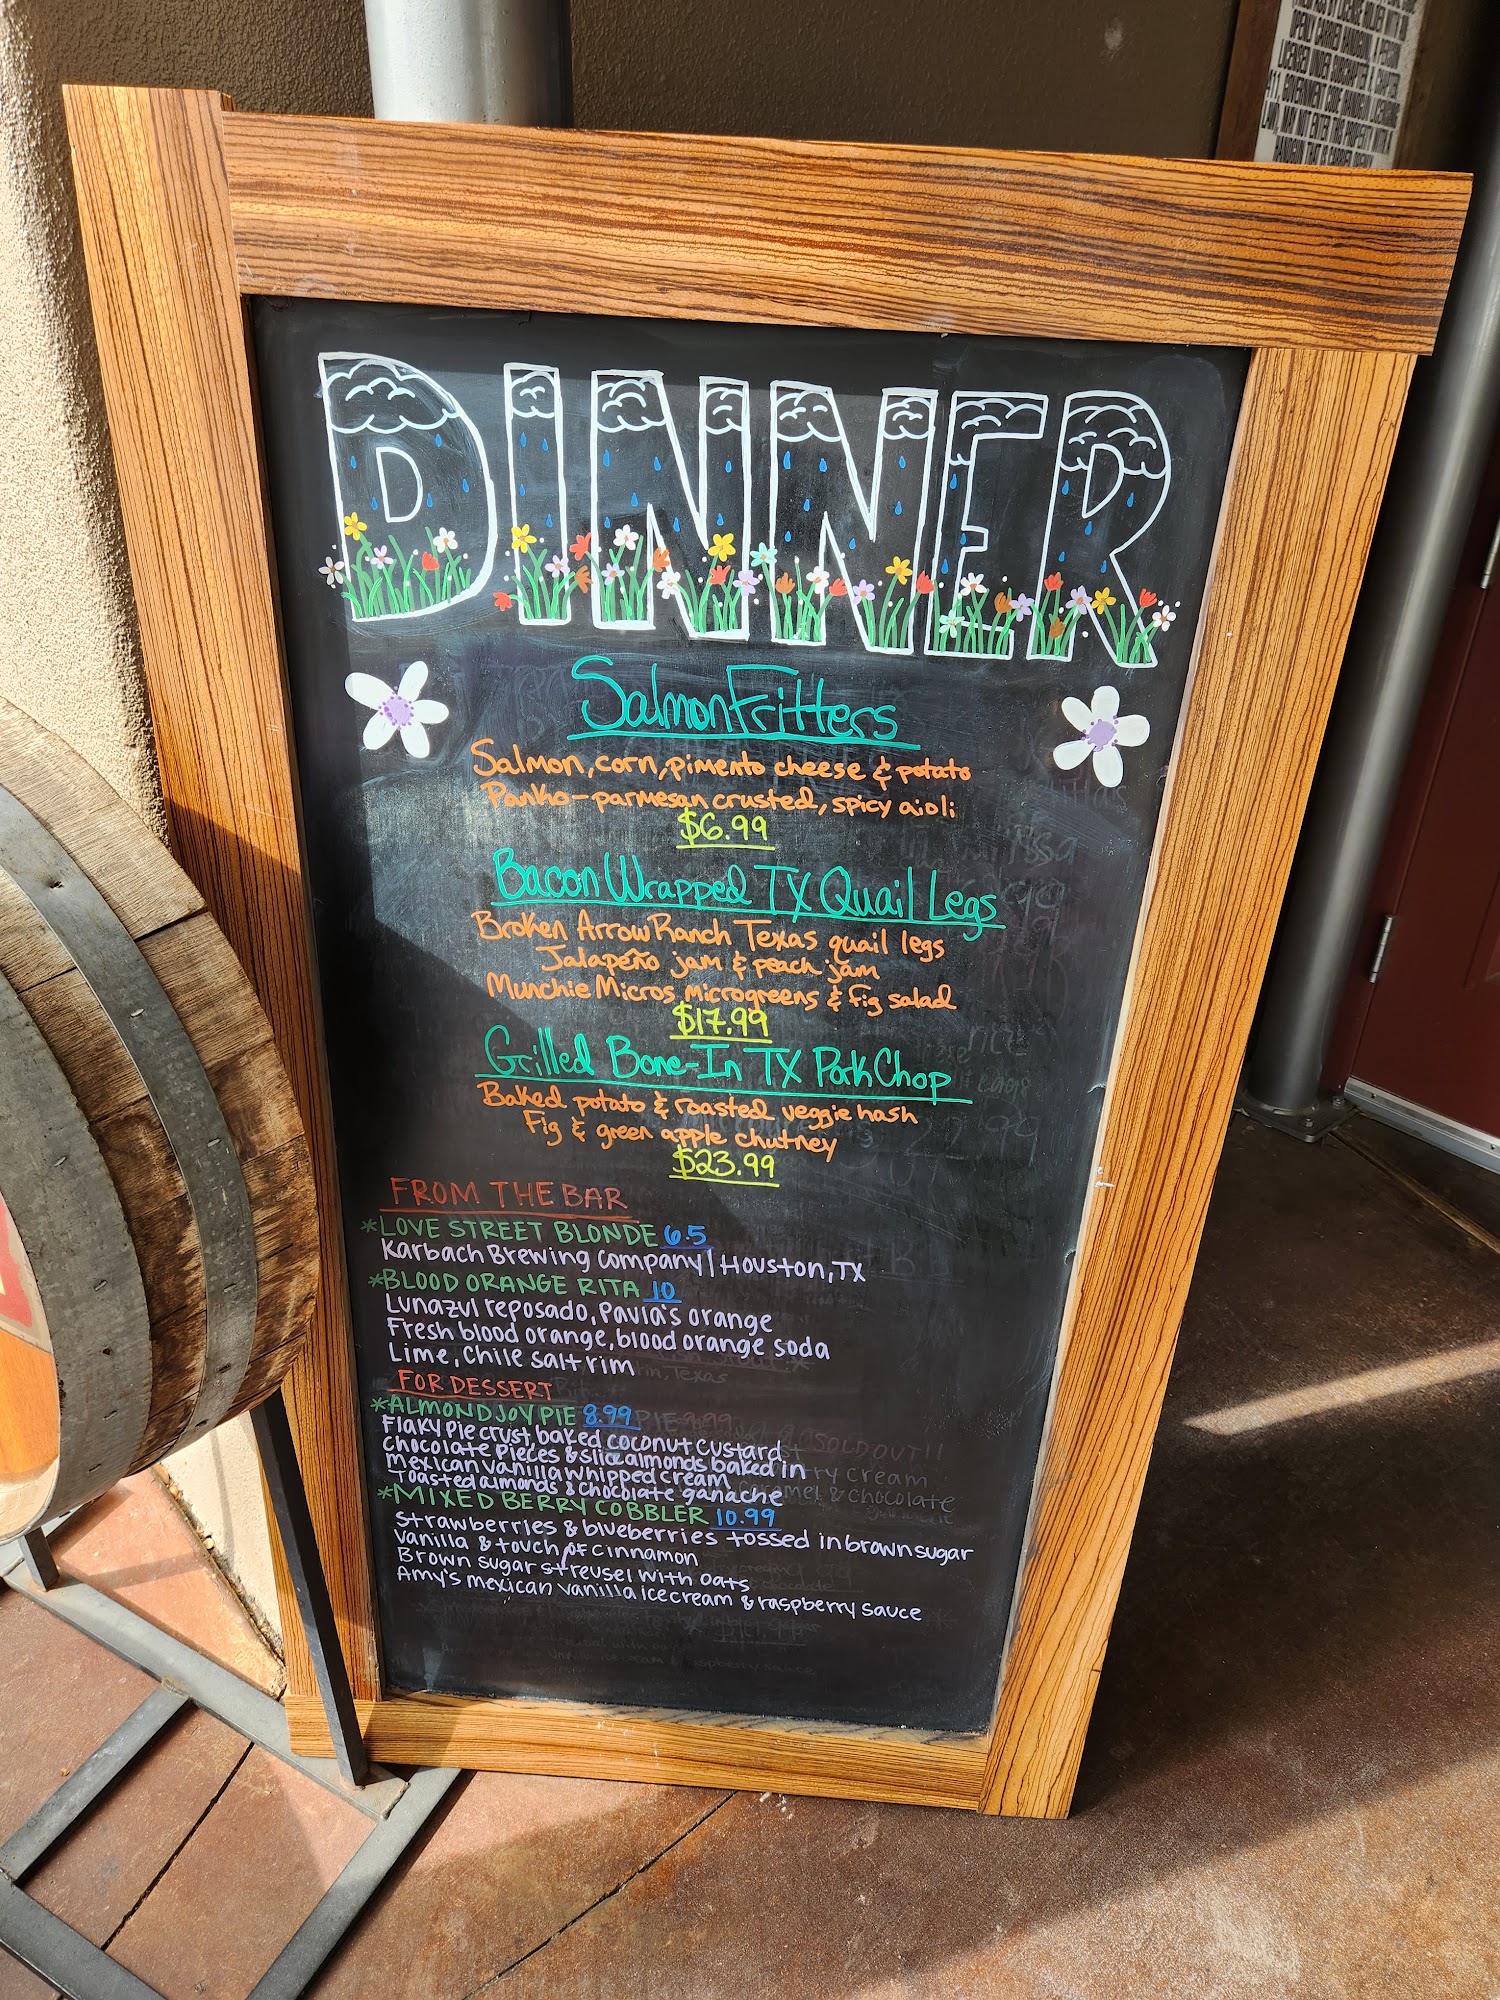 DINNER
Salmon Fritters
Salmon, corn, pimento cheese & potato
Panko-parmesan crusted, spicy aioli
$6.99
Bacon Wrapped TX Quail Legs
Broken Arrow Ranch Texas quail legs
Jalapeño jam & peach jam
Munchie Micros microgreens & fig salad
$17.99
Grilled Bone-In TX Pork Chop
Baked potato & roasted veggie hash
Fig & green apple chutney
$23.99
FROM THE BAR
*LOVE STREET BLONDE 6.5
Karbach Brewing Company | Houston, TX
*BLOOD ORANGE RITA 10
Lunazul reposado, Paula's orange
Fresh blood orange, blood orange soda
Lime, Chile salt rim
FOR DESSERT
*ALMOND JOY PIE 8.99
Flaky pie crust baked coconut custard
Chocolate pieces & slice almonds baked in
Mexican vanilla whipped cream
Toasted almonds & chocolate ganache
*MIXED BERRY COBBLER 10.99
Strawberries & blueberries tossed in brown sugar
Vanilla & touch of cinnamon
Brown sugar streusel with oats
Amy's mexican vanilla ice cream & raspberry sauce